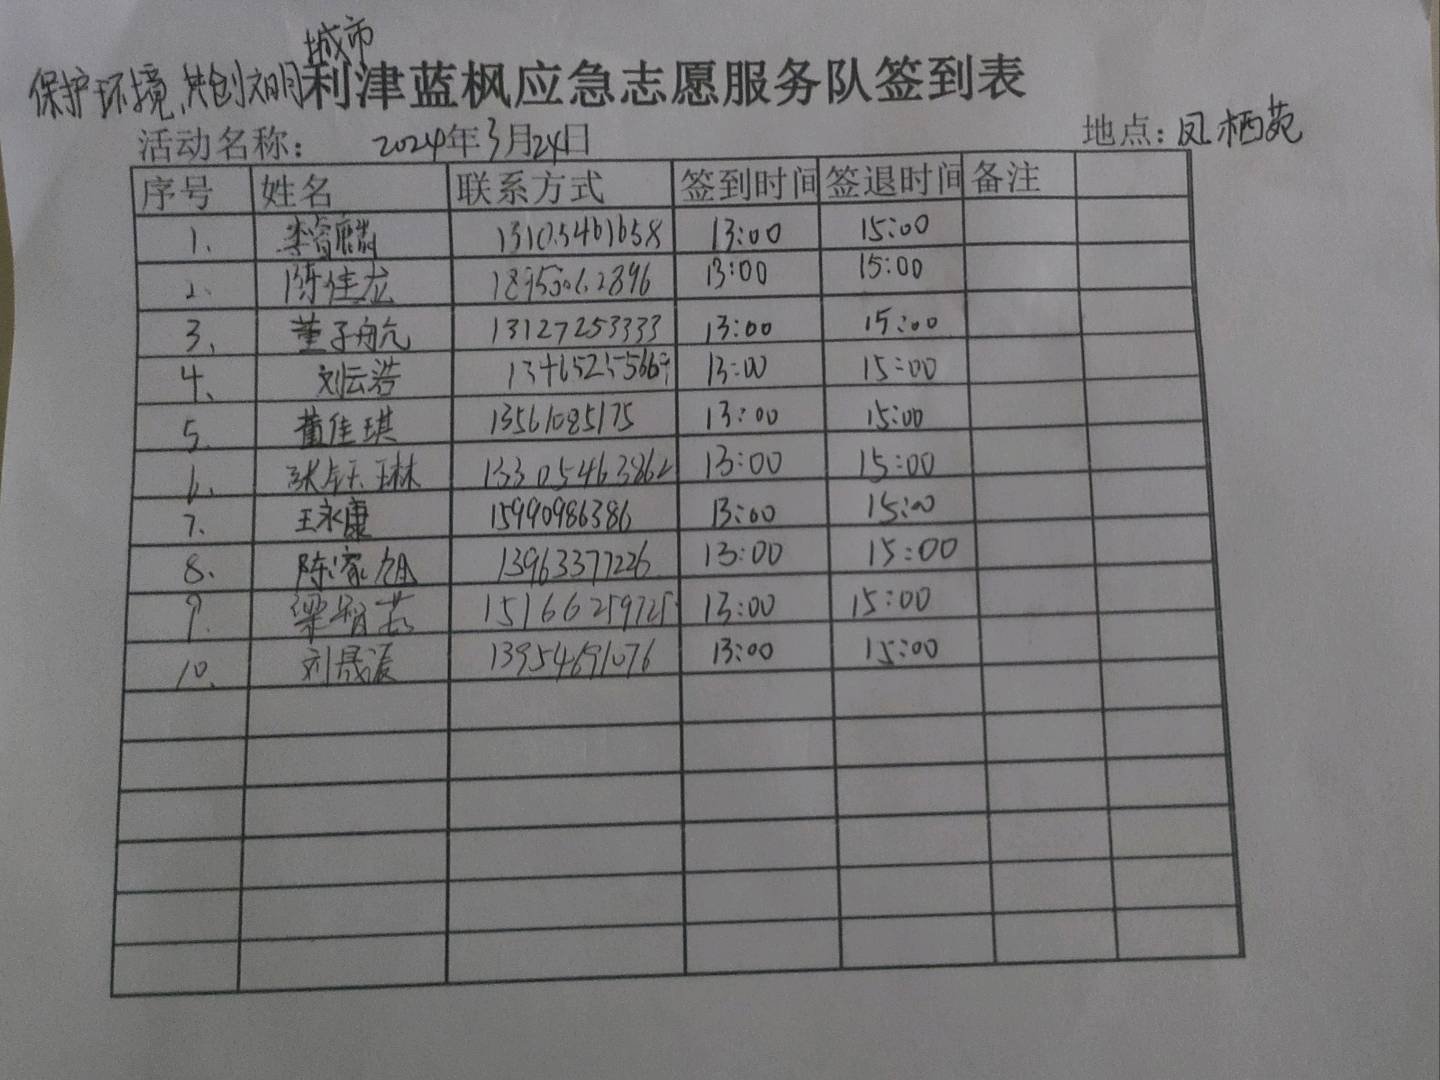 城市
保护环境,共创文明利津蓝枫应急志愿服务队签到表
活动名称： 2024年3月24日 地点：凤栖苑
序号 姓名 联系方式 签到时间 签退时间 备注
1. 李睿麟 13105461658 13:00 15:00
2. 陈佳龙 13:00 15:00
3. 董子航 13127253333 13:00 15:00
4. 刘云浩 13465255669 13:00 15:00
5. 董佳琪 13561085175 13:00 15:00
6. 张钰琳 13305463862 13:00 15:00
7. 王永康 15990986386 13:00 15:00
8. 陈家旭 13963377226 13:00 15:00
9. 梁智 15166259725 13:00 15:00
10. 刘晟 13954691076 13:00 15:00